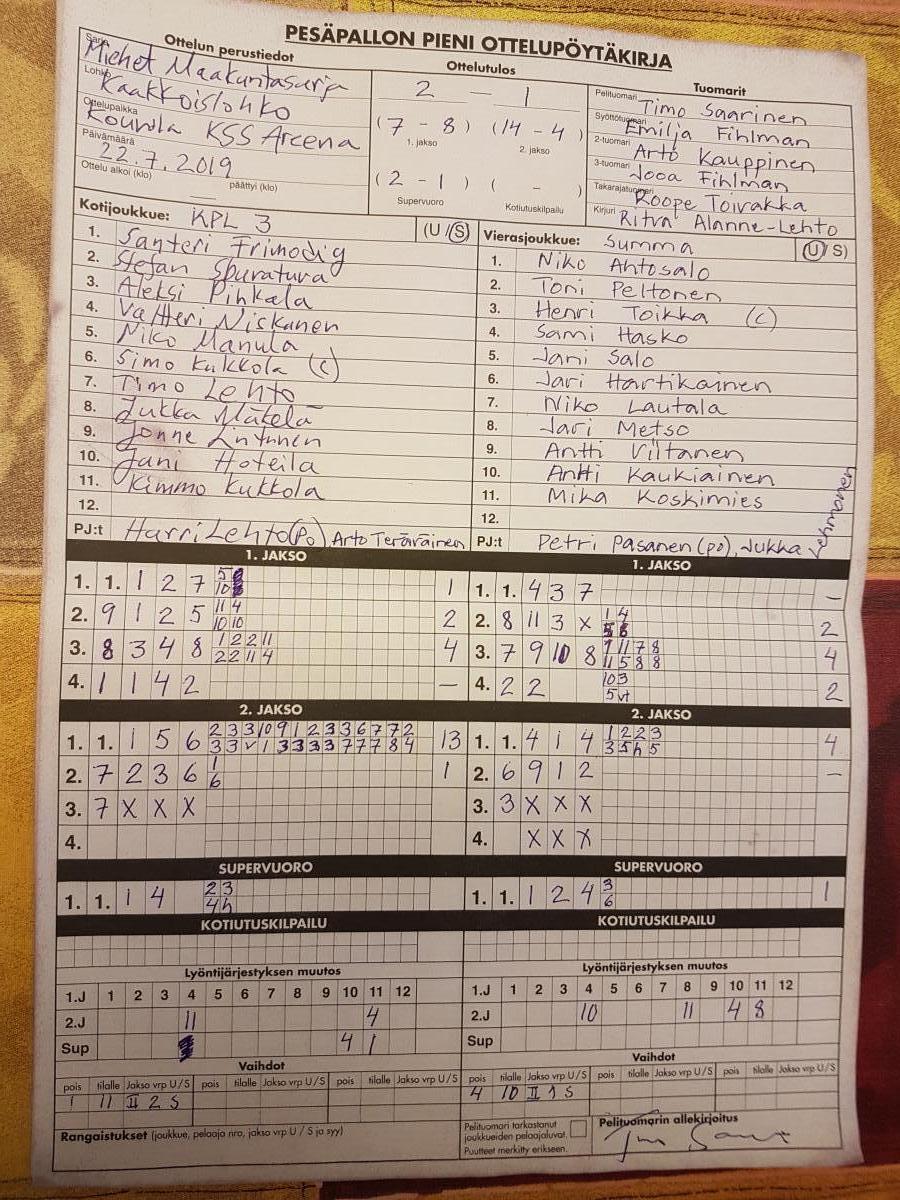 PESÄPALLON PIENI OTTELUPÖYTÄKIRJA
Ottelun perustiedot
Sarja Miehet Maakuntasarja
Lohko Kaakkoislohko
Ottelupaikka Kouvola KSS Arena
Päivämäärä 22.7.2019
Ottelu alkoi (klo) päättyi (klo)
Ottelutulos
2 — 1
(7 - 8) (14 - 4)
1. jakso 2. jakso
(2 - 1) ( - )
Supervuoro Kotiutuskilpailu
Tuomarit
Pelituomari Timo Saarinen
Syöttötuomari Emilia Fihlman
2-tuomari Arto Kauppinen
3-tuomari Jooa Fihlman
Takarajatuomari Roope Toivakka
Kirjuri Ritva Alanne-Lehto
Kotijoukkue: KPL 3 (U/S)
1. Santeri Frimodig
2. Stefan
3. Aleksi Pihkala
4. Valtteri Niskanen
5. Niko Manula
6. Simo Kukkola (c)
7. Timo Lehto
8. Jukka Mäkelä
9. Jonne Lintunen
10. Jani Hoteila
11. Kimmo Kukkola
12.
PJ:t Harri Lehto (Po) Arto Teräväinen
Vierasjoukkue: Summa (U/S)
1. Niko Ahtosalo
2. Toni Peltonen
3. Henri Toikka (c)
4. Sami Hasko
5. Jani Salo
6. Jari Hartikainen
7. Niko Lautala
8. Jari Metso
9. Antti Viltanen
10. Antti Kaukiainen
11. Mika Koskimies
12.
PJ:t Petri Pasanen (po), Jukka Lehmonen
1. JAKSO
1. 1. 1 2 7 5 10 1
2. 9 1 2 5 11 4 10 10 2
3. 8 3 4 8 1 2 2 11 2 2 11 4 4
4. 1 1 4 2 —
1. JAKSO
1. 1. 4 3 7 —
2. 8 11 3 X 1 4 5 8 2
3. 7 9 10 8 11 7 8 11 5 8 8 4
4. 2 2 10 3 5 vt 2
2. JAKSO
1. 1. 1 5 6 2 3 3 10 9 1 2 3 3 6 7 7 2 13
3 3 v 1 3 3 3 3 7 7 7 8 4
2. 7 2 3 6 1 6 1
3. 7 X X X
4.
2. JAKSO
1. 1. 4 1 4 1 2 2 3 4
3 5 h 5
2. 6 9 1 2 —
3. 3 X X X
4. X X X
SUPERVUORO
1. 1. 1 4 2 3
4 h
SUPERVUORO
1. 1. 1 2 4 3 1
6
KOTIUTUSKILPAILU
KOTIUTUSKILPAILU
Lyöntijärjestyksen muutos
1.J 1 2 3 4 5 6 7 8 9 10 11 12
2.J 11 4
Sup 4 1
Lyöntijärjestyksen muutos
1.J 1 2 3 4 5 6 7 8 9 10 11 12
2.J 10 11 4 8
Sup
Vaihdot
pois tilalle Jakso vrp U/S pois tilalle Jakso vrp U/S pois tilalle Jakso vrp U/S
1 11 II 2 S
Vaihdot
pois tilalle Jakso vrp U/S pois tilalle Jakso vrp U/S pois tilalle Jakso vrp U/S
4 10 II 1 S
Rangaistukset (joukkue, pelaaja nro, jakso vrp U / S ja syy)
Pelituomari tarkastanut
joukkueiden pelaajaluvat.
Puutteet merkitty erikseen.
Pelituomarin allekirjoitus